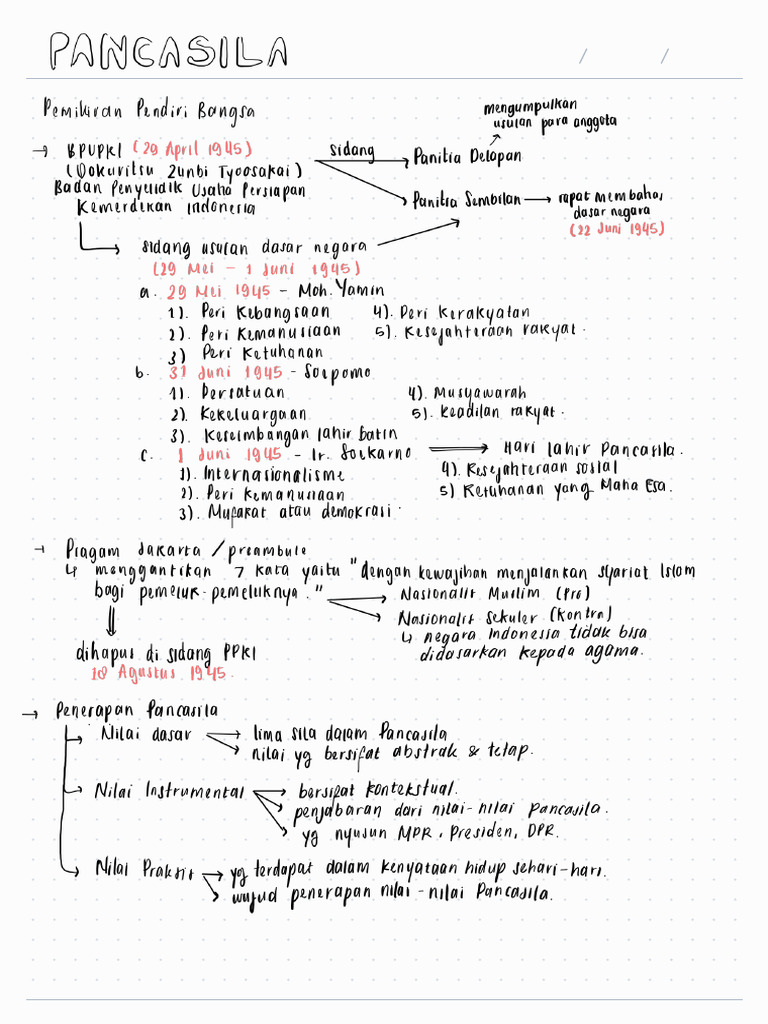 PANCASILA
/ /
Pemikiran Pendiri Bangsa
mengumpulkan
usulan para anggota
→ BPUPKI (29 April 1945)
sidang
Panitia Delapan
(Dokuritsu Zunbi Tyoosakai)
Badan Penyelidik Usaha Persiapan
Kemerdekan Indonesia
Panitia Sembilan → rapat membahas
dasar negara
(22 Juni 1945)
sidang usulan dasar negara
(29 Mei - 1 Juni 1945)
a. 29 Mei 1945 - Moh. Yamin
1). Peri Kebangsaan 4). Peri Kerakyatan
2). Peri Kemanusiaan 5). Kesejahteraan rakyat.
3) Peri Ketuhanan
b. 31 Juni 1945 - Soepomo
1). Persatuan 4). Musyawarah
2). Kekeluargaan 5). Keadilan rakyat.
3). Keseimbangan lahir batin
c. 1 Juni 1945 - Ir. Soekarno → Hari lahir Pancasila.
1). Internasionalisme 4). Kesejahteraan sosial
2). Peri Kemanusiaan 5) Ketuhanan yang Maha Esa.
3). Mufakat atau demokrasi.
→ Piagam Jakarta / preambule
↳ menggantikan 7 kata yaitu "dengan kewajiban menjalankan syariat Islam
bagi pemeluk-pemeluknya."
Nasionalis Muslim (Pro)
Nasionalis Sekuler (Kontra)
↳ negara Indonesia tidak bisa
didasarkan kepada agama.
dihapus di sidang PPKI
18 Agustus 1945.
→ Penerapan Pancasila
Nilai dasar → lima sila dalam Pancasila
→ nilai yg bersifat abstrak & tetap.
Nilai Instrumental → bersifat kontekstual.
→ penjabaran dari nilai-nilai Pancasila.
→ yg nyusun MPR, Presiden, DPR.
Nilai Praksis → yg terdapat dalam kenyataan hidup sehari-hari.
→ wujud penerapan nilai-nilai Pancasila.